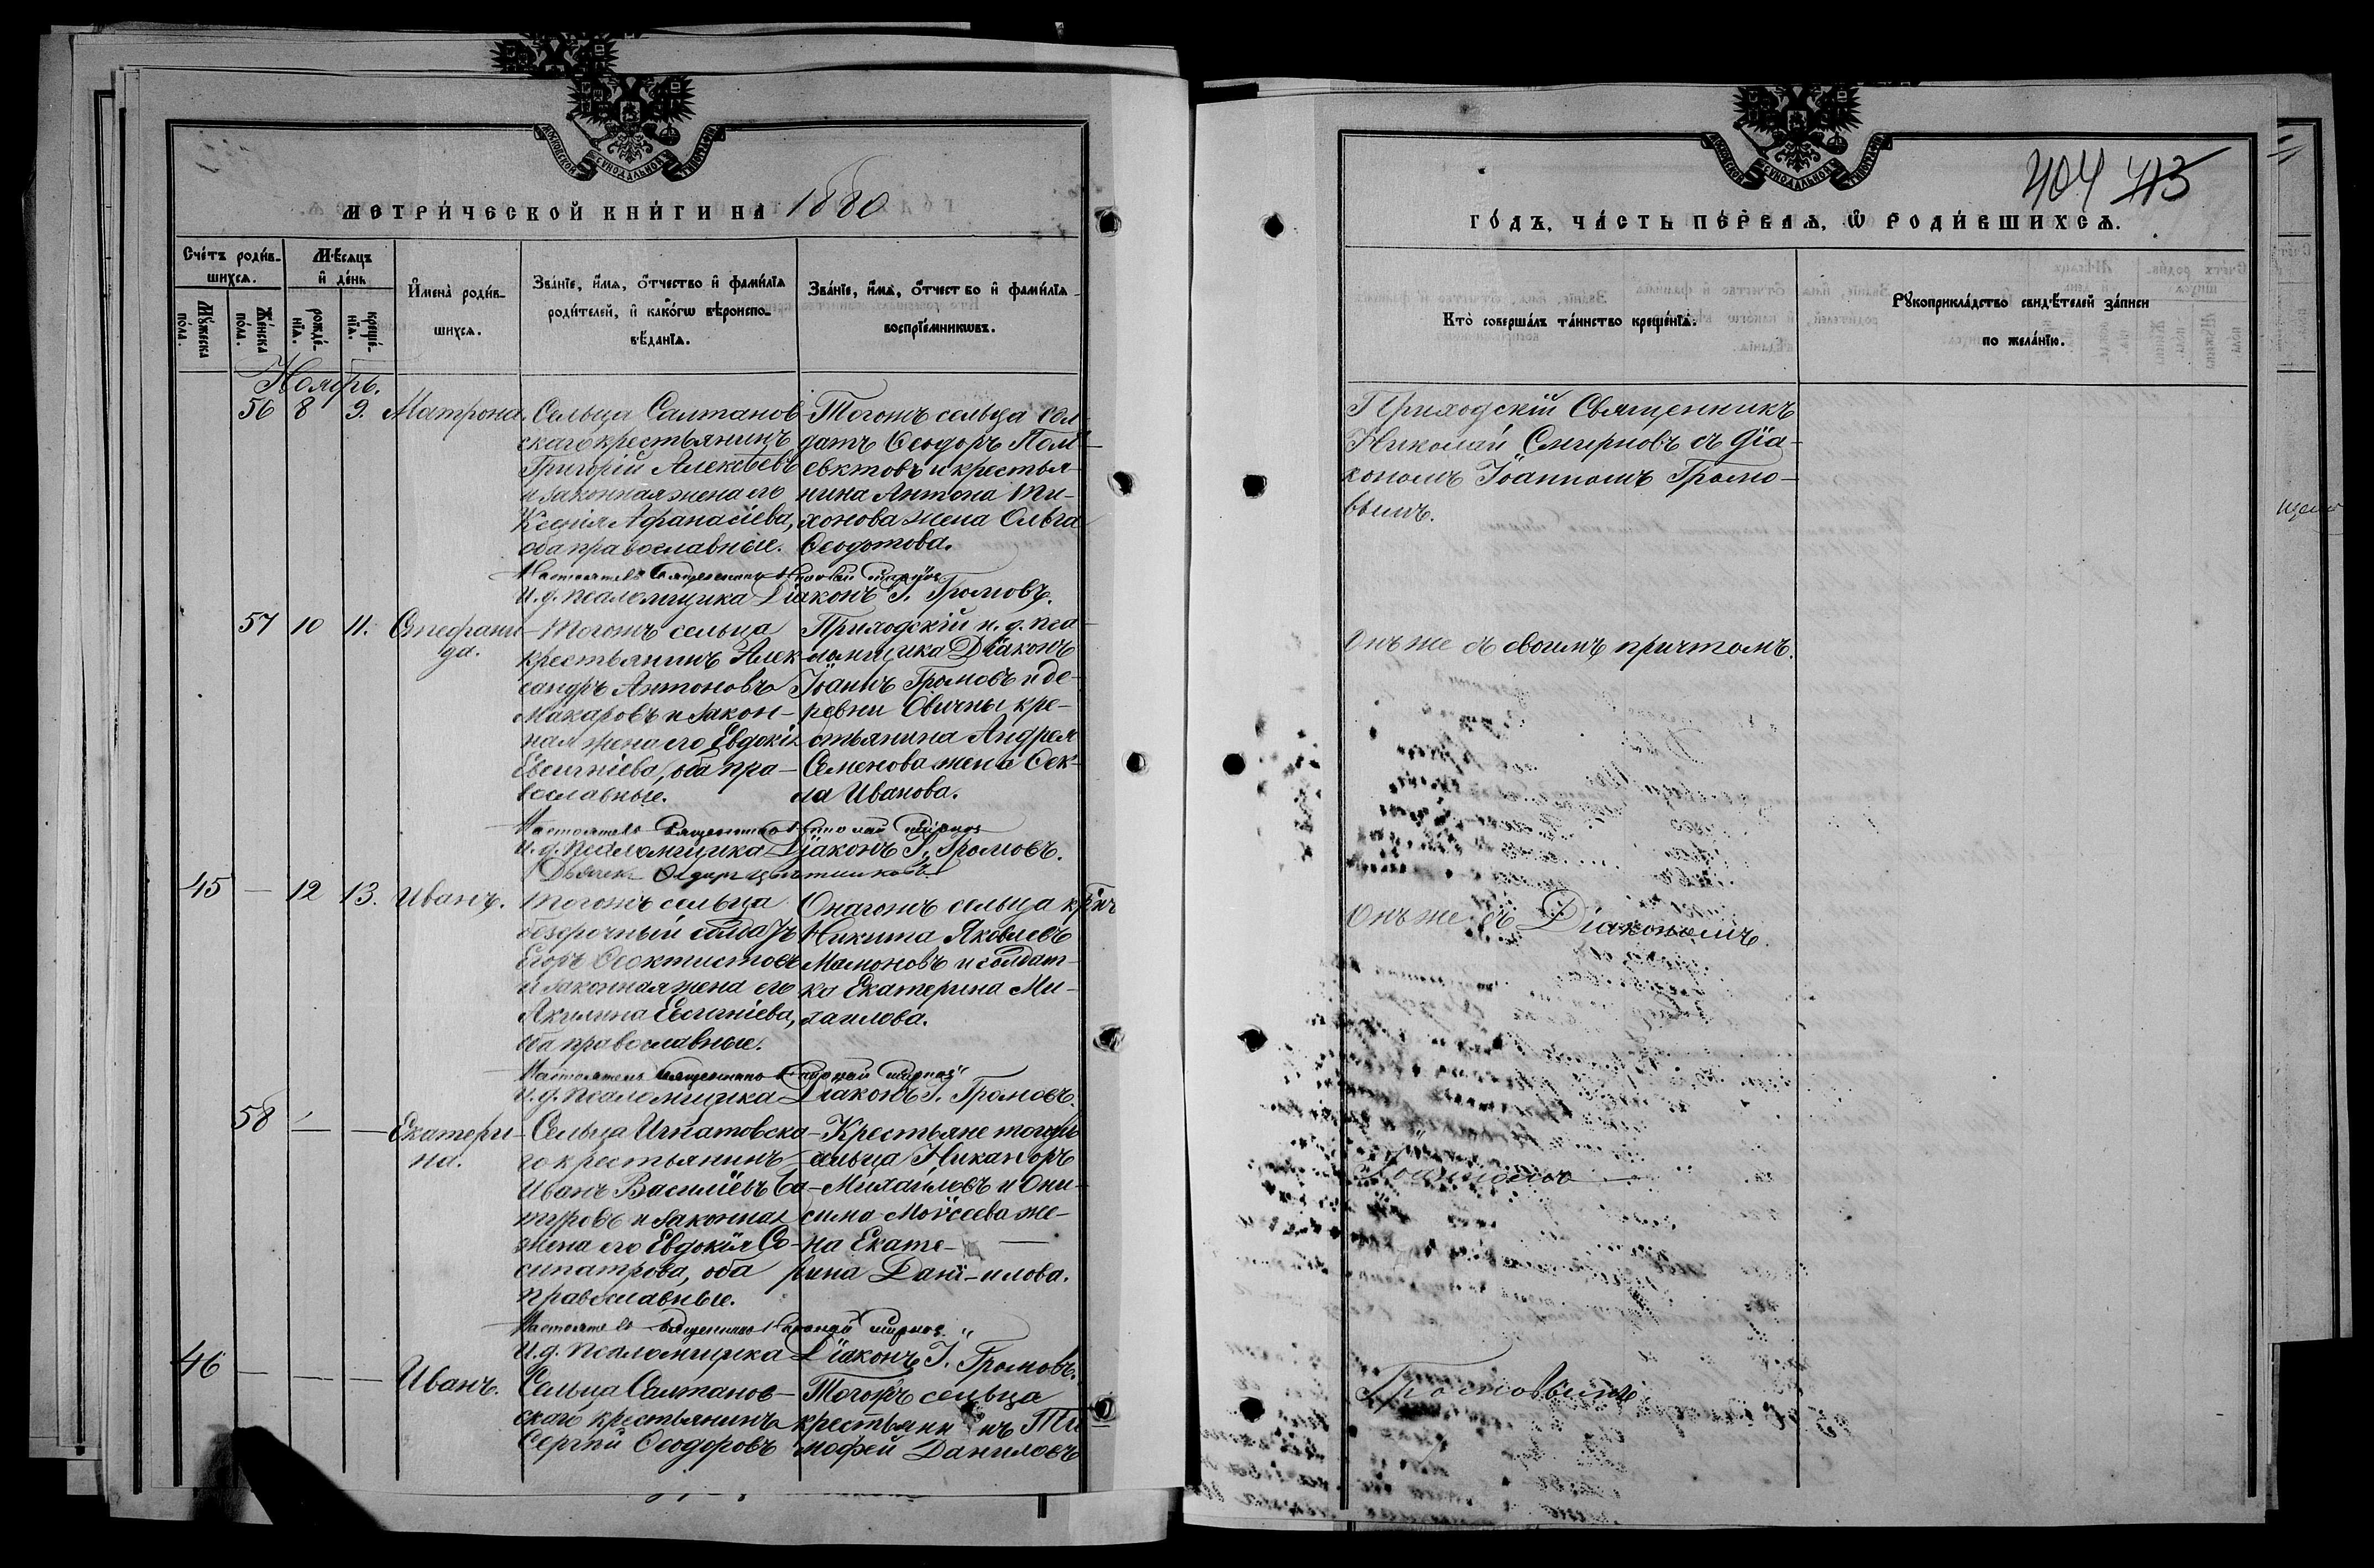 МЕТРИ́ЧЕСКОЙ КНИ́ГИ НА 1880
Сче́тъ роди́в-
шихсѧ.
Мѣ́сяцъ
и҆ де́нь
Мꙋ́жеска
по́ла.
Же́нска
по́ла.
рожде́-
нїѧ.
креще́-
нїѧ.
И҆мена̀ роди́в-
шихсѧ.
Зва́нїе, и҆́мѧ, ѻ҆́тчество и҆ фами́лїѧ
роди́телей, и҆ како́гѡ вѣроиспо-
вѣ́данїѧ.
Зва́нїе, и҆́мѧ, ѻ҆́тчество и҆ фами́лїѧ
воспрїе́мникѡвъ.
Ноябрь.
56 8 9. Матрона.
Сельца Салтанов-
скаго крестьянинъ
Григорій Алексѣевъ
и законная жена его
Ксенія Афанасіева,
оба православные.
Тогожъ сельца сол-
датъ Ѳеодоръ Поли-
евктовъ и крестья-
нина Антона Ти-
хонова жена Ольга
Ѳеодотова.
Настоятель Священникъ Николай Смирновъ
И. д. псаломщика Діаконъ І. Громовъ.
57 10 11. Стефани-
да.
Тогожъ сельца
крестьянинъ Алек-
сандръ Антоновъ
Макаровъ и закон-
ная жена его Евдокія
Евсигніева, оба пра-
вославные.
Приходскій и. д. пса-
ломщика Діаконъ
Іоаннъ Громовъ и де-
ревни Овичны кре-
стьянина Андрея
Семенова жена Ѳек-
ла Иванова.
Настоятель Священникъ Николай Смирновъ
И. д. псаломщика Діаконъ І. Громовъ.
45 — 12 13. Иванъ.
Тогожъ сельца
безсрочный солдатъ
Егоръ Ѳеоктистовъ
и законная жена его
Акилина Евсигніева,
оба православные.
Онагожъ сельца кр-нъ
Никита Яковлевъ
Мамоновъ и солдат-
ка Екатерина Ми-
хаилова.
Настоятель Священникъ Николай Смирновъ
И. д. псаломщика Діаконъ І. Громовъ.
58 — — Екатери-
на.
Сельца Игнатовска-
го крестьянинъ
Иванъ Василіевъ Ба-
туровъ и законная
жена его Евдокія Со-
сипатрова, оба
православные.
Крестьяне тогожъ
сельца Никаноръ
Михаиловъ и Они-
сима Моѵсеева же-
на Екате-
рина Дані-илова.
Настоятель Священникъ Николай Смирновъ
И. д. псаломщика Діаконъ І. Громовъ.
46 — — — Иванъ.
Сельца Салтанов-
скаго крестьянинъ
Сергій Ѳеодоровъ
Тогожъ сельца
крестьянинъ Ти-
мофей Даниловъ
404 413
ГО́ДЪ, ЧА́СТЬ ПЕ́РВАѦ, Ѡ҆ РОДИ́ВШИХСѦ.
Кто̀ соверша́лъ та́инство креще́нїѧ.
Рꙋкоприкла́дство свидѣ́телей за́писи
по жела́нїю.
Приходскій Священникъ
Николай Смирновъ съ діа-
кономъ Іоанномъ Громо-
вымъ.
Онъ же съ своимъ причтомъ.
Онъ же съ Діакономъ
Іоанномъ
Громовымъ